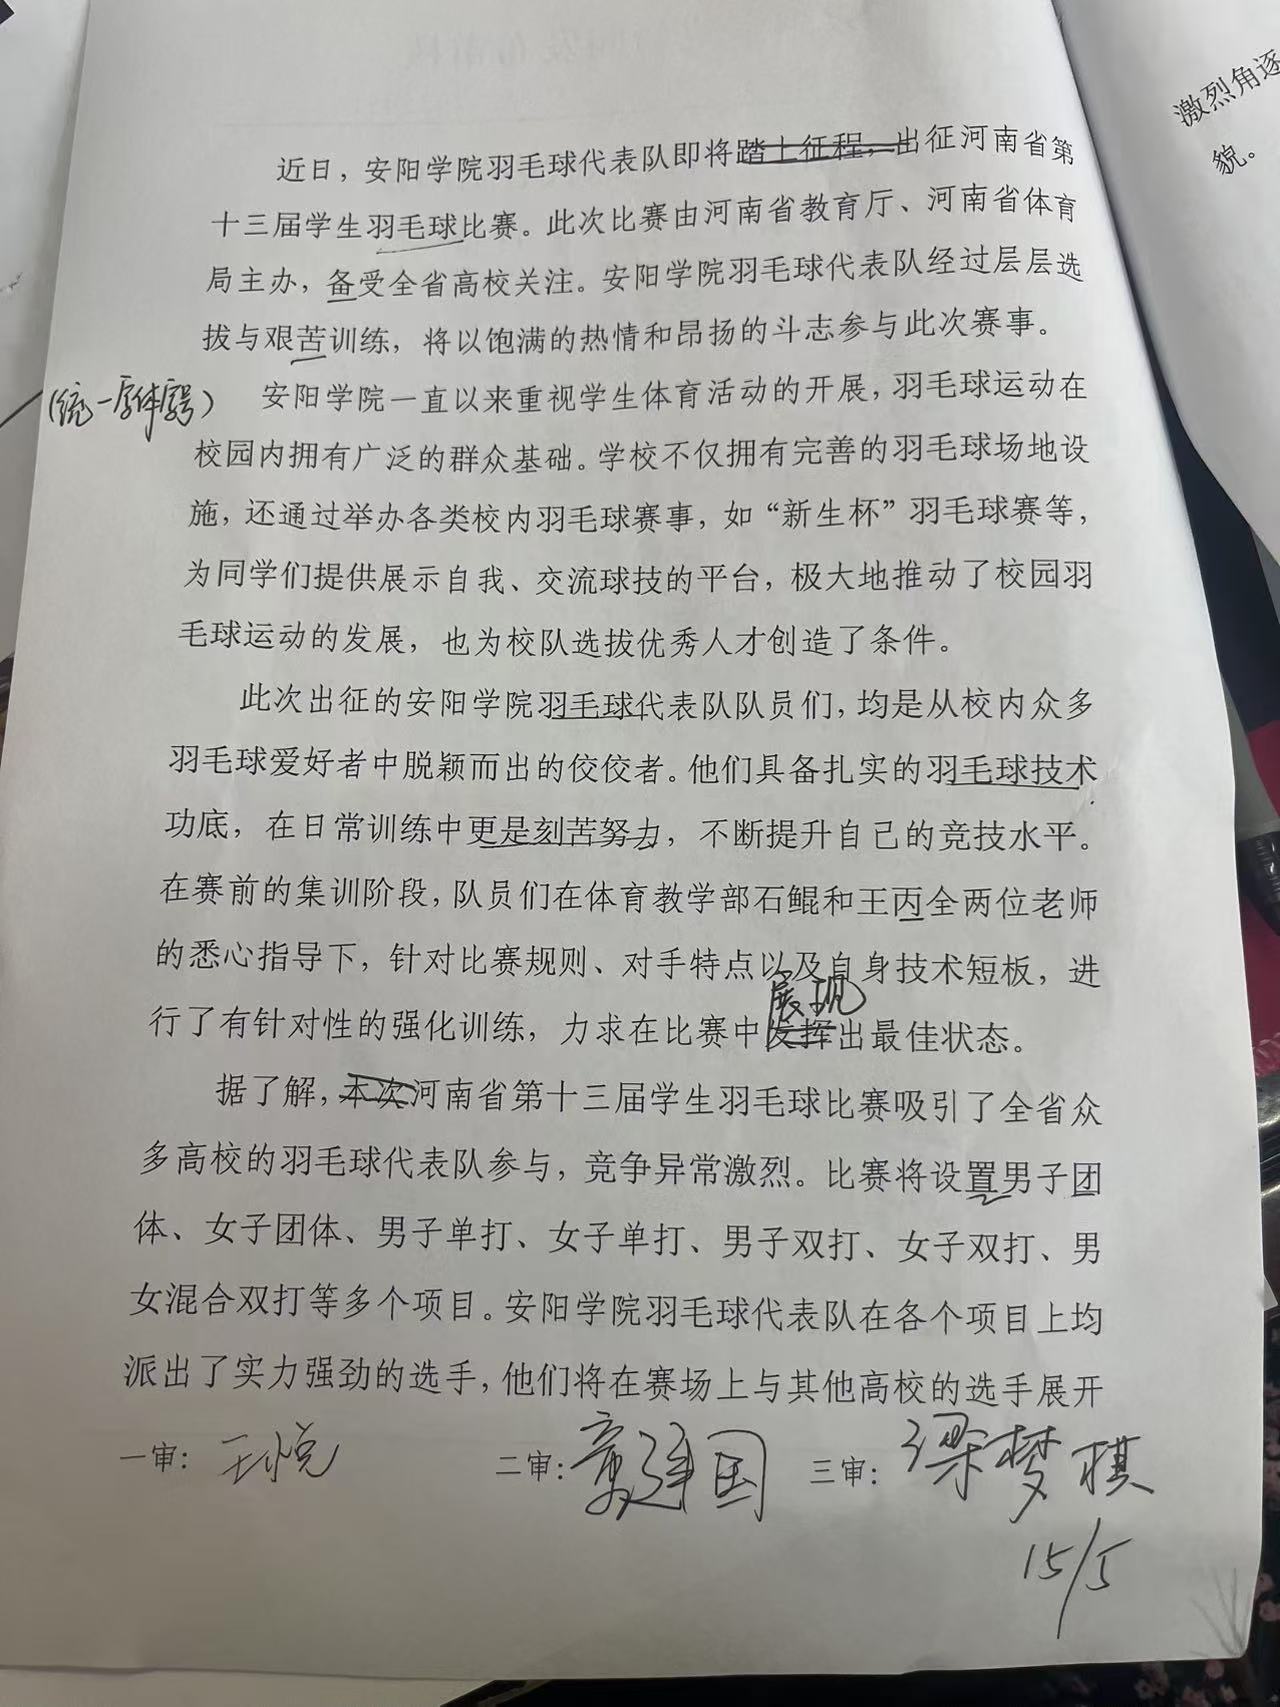 近日，安阳学院羽毛球代表队即将踏上征程，出征河南省第
十三届学生羽毛球比赛。此次比赛由河南省教育厅、河南省体育
局主办，备受全省高校关注。安阳学院羽毛球代表队经过层层选
拔与艰苦训练，将以饱满的热情和昂扬的斗志参与此次赛事。
(统一字体字号)
安阳学院一直以来重视学生体育活动的开展，羽毛球运动在
校园内拥有广泛的群众基础。学校不仅拥有完善的羽毛球场地设
施，还通过举办各类校内羽毛球赛事，如“新生杯”羽毛球赛等，
为同学们提供展示自我、交流球技的平台，极大地推动了校园羽
毛球运动的发展，也为校队选拔优秀人才创造了条件。
此次出征的安阳学院羽毛球代表队队员们，均是从校内众多
羽毛球爱好者中脱颖而出的佼佼者。他们具备扎实的羽毛球技术
功底，在日常训练中更是刻苦努力，不断提升自己的竞技水平。
在赛前的集训阶段，队员们在体育教学部石鲲和王丙全两位老师
的悉心指导下，针对比赛规则、对手特点以及自身技术短板，进
展现
行了有针对性的强化训练，力求在比赛中发挥出最佳状态。
据了解，本次河南省第十三届学生羽毛球比赛吸引了全省众
多高校的羽毛球代表队参与，竞争异常激烈。比赛将设置男子团
体、女子团体、男子单打、女子单打、男子双打、女子双打、男
女混合双打等多个项目。安阳学院羽毛球代表队在各个项目上均
派出了实力强劲的选手，他们将在赛场上与其他高校的选手展开
一审：王悦
二审：建国
三审：梁梦棋
15/5
激烈角逐
貌。